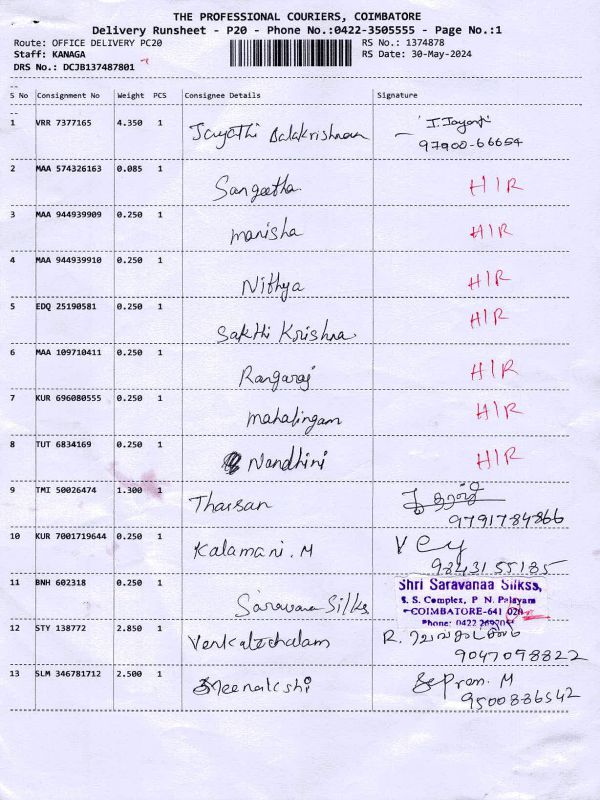 THE PROFESSIONAL COURIERS, COIMBATORE
Delivery Runsheet - P20 - Phone No.:0422-3505555 - Page No.:1
Route: OFFICE DELIVERY PC20
RS No.: 1374878
Staff: KANAGA
RS Date: 30-May-2024
DRS No.: DCJB137487801
--
S No Consignment No Weight PCS Consignee Details Signature
--
1 VRR 7377165 4.350 1 Jayathi Balakrishnan J. Jayanti
97900-66654
2 MAA 574326163 0.085 1 Sangeetha HIR
3 MAA 944939909 0.250 1 manisha HIR
4 MAA 944939910 0.250 1 Nithya HIR
5 EDQ 25190581 0.250 1 Sakthi Krishna HIR
6 MAA 109710411 0.250 1 Rangaraj HIR
7 KUR 696080555 0.250 1 mahalingam HIR
8 TUT 6834169 0.250 1 Nandhini HIR
9 TMI 50026474 1.300 1 Tharsan
9791784866
10 KUR 7001719644 0.250 1 Kalamani. M
9843155185
11 BNH 602318 0.250 1 Saravana Silks Shri Saravanaa Silkss,
S. S. Complex, P. N. Palayam
COIMBATORE-641 020
Phone: 0422
12 STY 138772 2.850 1 Venkatachalam R. வெங்கடாசலம்
9047098822
13 SLM 346781712 2.500 1 Meenakshi Prem. M
9500886542